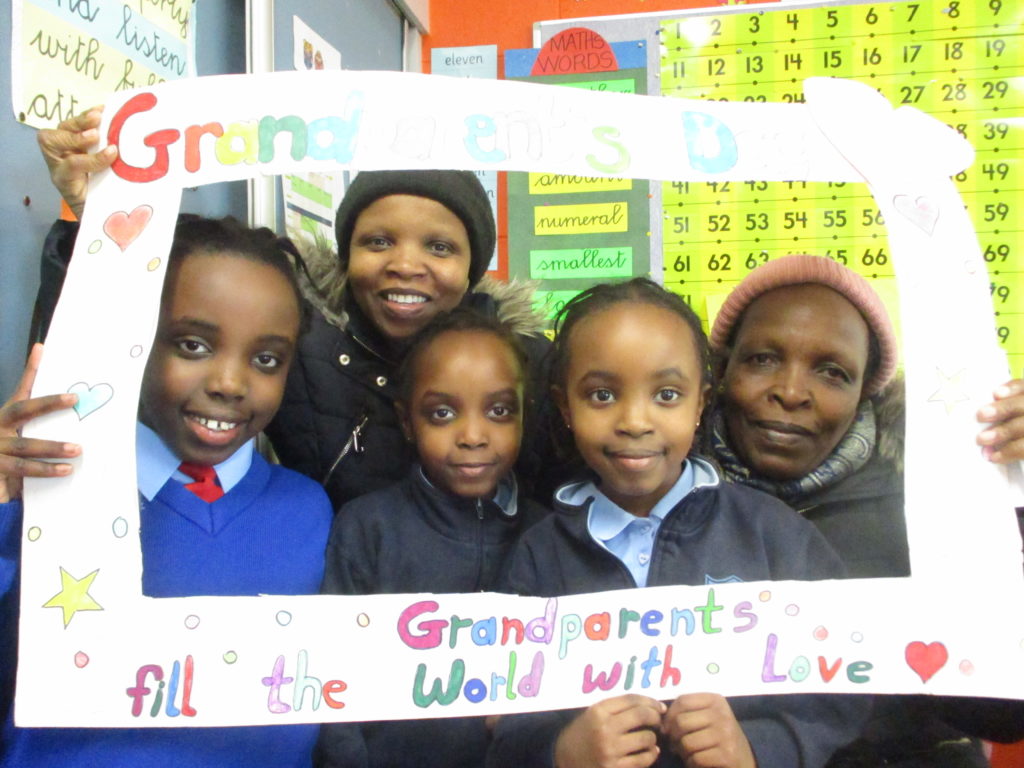 listen
with
eleven
MATHS
WORDS
amount
numeral
smallest
1 2 3 4 5 6 7 8 9
11 12 13 14 15 16 17 18 19
27 28 29
39
41 42 43 44 45 49
51 52 53 54 55 56 59
61 62 63 64 65 66
Grandparent's Day
Grandparents
fill the World with Love